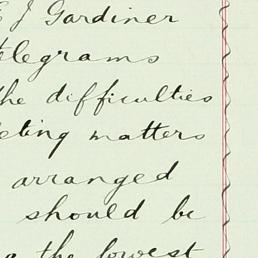 E J Gardiner
telegrams
the difficulties
eting matters
arranged
should be
the lowest